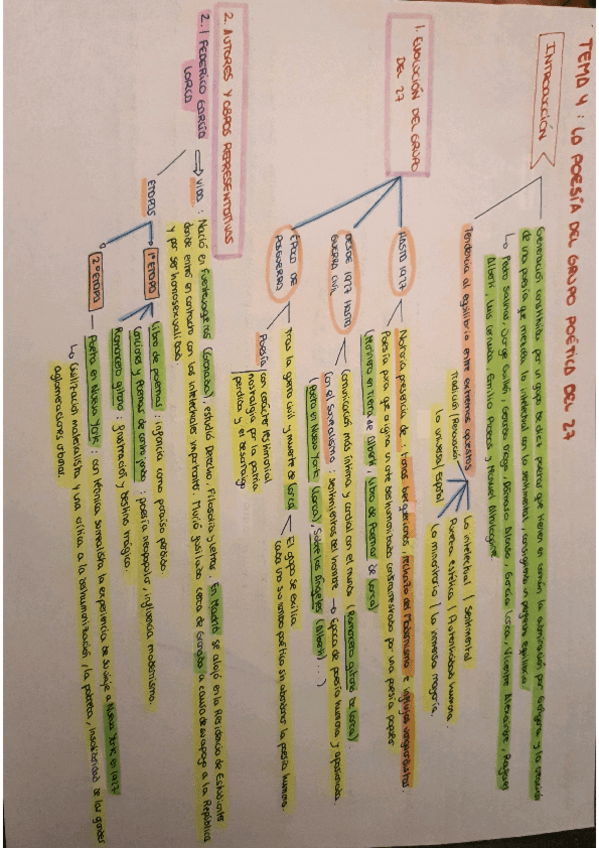 TEMA 4: LA POESÍA DEL GRUPO POÉTICO DEL 27
INTRODUCCIÓN
Generación constituida por un grupo de diez poetas que tienen en común la admiración por Góngora y la creación
de una poesía que mezclaba lo intelectual con lo sentimental, consiguiendo un perfecto equilibrio.
↳ Pedro Salinas, Jorge Guillén, Gerardo Diego, Dámaso Alonso, García Lorca, Vicente Aleixandre, Rafael
Alberti, Luis Cernuda, Emilio Prados y Manuel Altolaguirre.
Tendencia al equilibrio entre extremos opuestos
Lo intelectual / Sentimental
Pureza estética / Autenticidad humana
Lo minoritario / La inmensa mayoría.
Lo universal / Español
Tradición / Renovación
1. EVOLUCIÓN DEL GRUPO
DEL 27
HASTA 1927
Notoria presencia de tonos becquerianos, rechazo del Modernismo e influjos vanguardistas.
Poesía pura que origina un arte deshumanizado contrarrestado por una poesía popular
(Marinero en Tierra de Alberti, Libro de Poemas de Lorca)
DESDE 1927 HASTA
GUERRA CIVIL
Comunicación más íntima y cordial con el mundo (Romancero gitano de Lorca)
Con el surrealismo: sentimientos del hombre → época de poesía humana y apasionada.
(Poeta en Nueva York (Lorca), Sobre los Ángeles (Alberti)...)
ÉPOCA DE
POSGUERRA
Tras la guerra civil y muerte de Lorca
El grupo se exilia
Cada uno su rumbo poético sin abandonar la poesía humana.
Poesía con carácter testimonial
nostalgia por la patria
perdida y el desarraigo
2. AUTORES Y OBRAS REPRESENTATIVAS
2.1 FEDERICO GARCÍA
LORCA
→ VIDA: Nació en Fuentevaqueros (Granada), estudió Derecho, Filosofía y Letras. En Madrid se alojó en la Residencia de Estudiantes
donde entró en contacto con los intelectuales importantes. Murió fusilado cerca de Granada a causa de su apego a la República
y por ser homosexualidad.
ETAPAS
1ª ETAPA
Libro de poemas: infancia como paraíso perdido.
Canciones y Poemas del cante jondo: poesía neopopular, influencia modernismo.
Romancero gitano: frustración y destino trágico.
2ª ETAPA
Poeta en Nueva York: con técnica surrealista la experiencia de su viaje a Nueva York en 1927
↳ Civilización materialista y una crítica a la deshumanización, la pobreza, insolidaridad de las grandes
aglomeraciones urbanas.